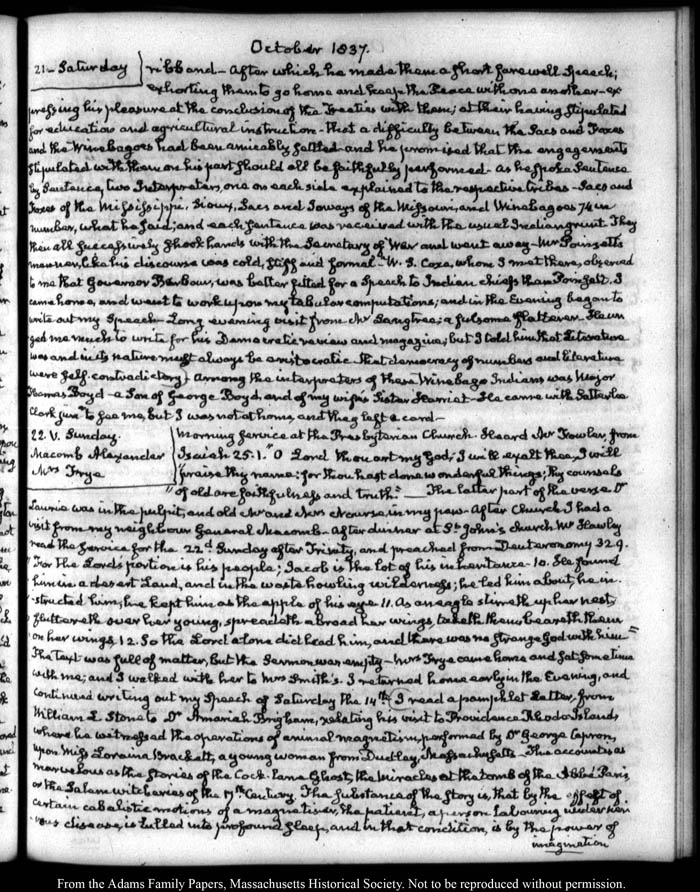 October 1837.
21 – Saturday
ribband – After which he made them a short farewell Speech;
exhorting them to go home and keep the Peace with one another – ex
pressing his pleasure at the conclusion of the Treaties with them; at their having stipulated
for education and agricultural instruction – that a difficulty between the Sacs and Foxes
and the Winebagoes had been amicably settled – and he promised that the engagements
stipulated with them on his part should all be faithfully performed – as he spoke Sentence
by Sentence, two Interpreters, one on each side explained to the respective tribes – Sacs and
Foxes of the Mississippi, Sioux, Sacs and Ioways of the Missouri, and Winebagoes 74 in
number, what he said; and each sentence was received with the usual Indian grunt. They
then all successively shook hands with the Secretary of War and went away – Mr Poinsett's
manner, like his discourse was cold, stiff and formal – W. S. Coxe, whom I met there, observed
to me that Governor Barbour, was better fitted for a Speech to Indian chiefs than Poinsett. I
came home, and went to work upon my tabular computations; and in the Evening began to
write out my Speech – Long evening visit from Mr Langtree; a fulsome flatterer. He ur
ged me much to write for his Democratic review and magazine; but I told him that Literature
was and in its nature must always be aristocratic – that democracy of numbers and literature
were self-contradictory) Among the interpreters of these Winebago Indians was Major
Thomas Boyd – a Son of George Boyd, and of my wife's Sister Harriet – He came with Satterlee
Clark junr to see me, but I was not at home, and they left a card –
22. V. Sunday.
Macomb Alexander
Mrs Frye
Morning service at the Presbyterian Church. Heard Mr Fowler, from
Isaiah 25:1. "O Lord thou art my God; I will exalt thee, I will
praise thy name; for thou hast done wonderful things; thy counsels
"of old are faithfulness and truth" – The latter part of the verse Dr
Laurie was in the pulpit, and old Mr and Mrs Nourse in my pew – After Church I had a
visit from my neighbour General Macomb – After dinner at St. John's church, Mr Hawley
read the service for the 22d Sunday after Trinity, and preached from Deuteronomy 32 9.
"For the Lord's portion is his people; Jacob is the lot of his inheritance. 10. He found
him in a desert Land, and in the waste howling wilderness; he led him about, he in
-structed him, he kept him as the apple of his eye 11. As an eagle stirreth up her nest,
fluttereth over her young, spreadeth abroad her wings, taketh them, beareth them
on her wings 12. So the Lord alone did lead him, and there was no strange God with him"
The text was full of matter, but the Sermon was empty – Mrs Frye came home and sat some time
with me; and I walked with her to Mrs Smith's. I returned home early in the Evening, and
continued writing out my Speech of Saturday the 14th (I read a pamphlet Letter, from
William L. Stone to Dr Amariah Brigham, relating his visit to Providence Rhode Island,
where he witnessed the operations of animal magnetism performed by Dr George Capron,
upon Miss Loraina Brackett, a young woman from Dudley, Massachusetts – This account is as
marvelous as the stories of the Cock-lane Ghost, the Miracles at the tomb of the Abbé Paris,
or the Salem witcheries of the 17th Century. The substance of the story is, that by the effect of
certain cabalistic motions of a magnetiser, the patient, a person labouring under
disease, is lulled into profound sleep, and in that condition, is by the power of
imagination
From the Adams Family Papers, Massachusetts Historical Society. Not to be reproduced without permission.